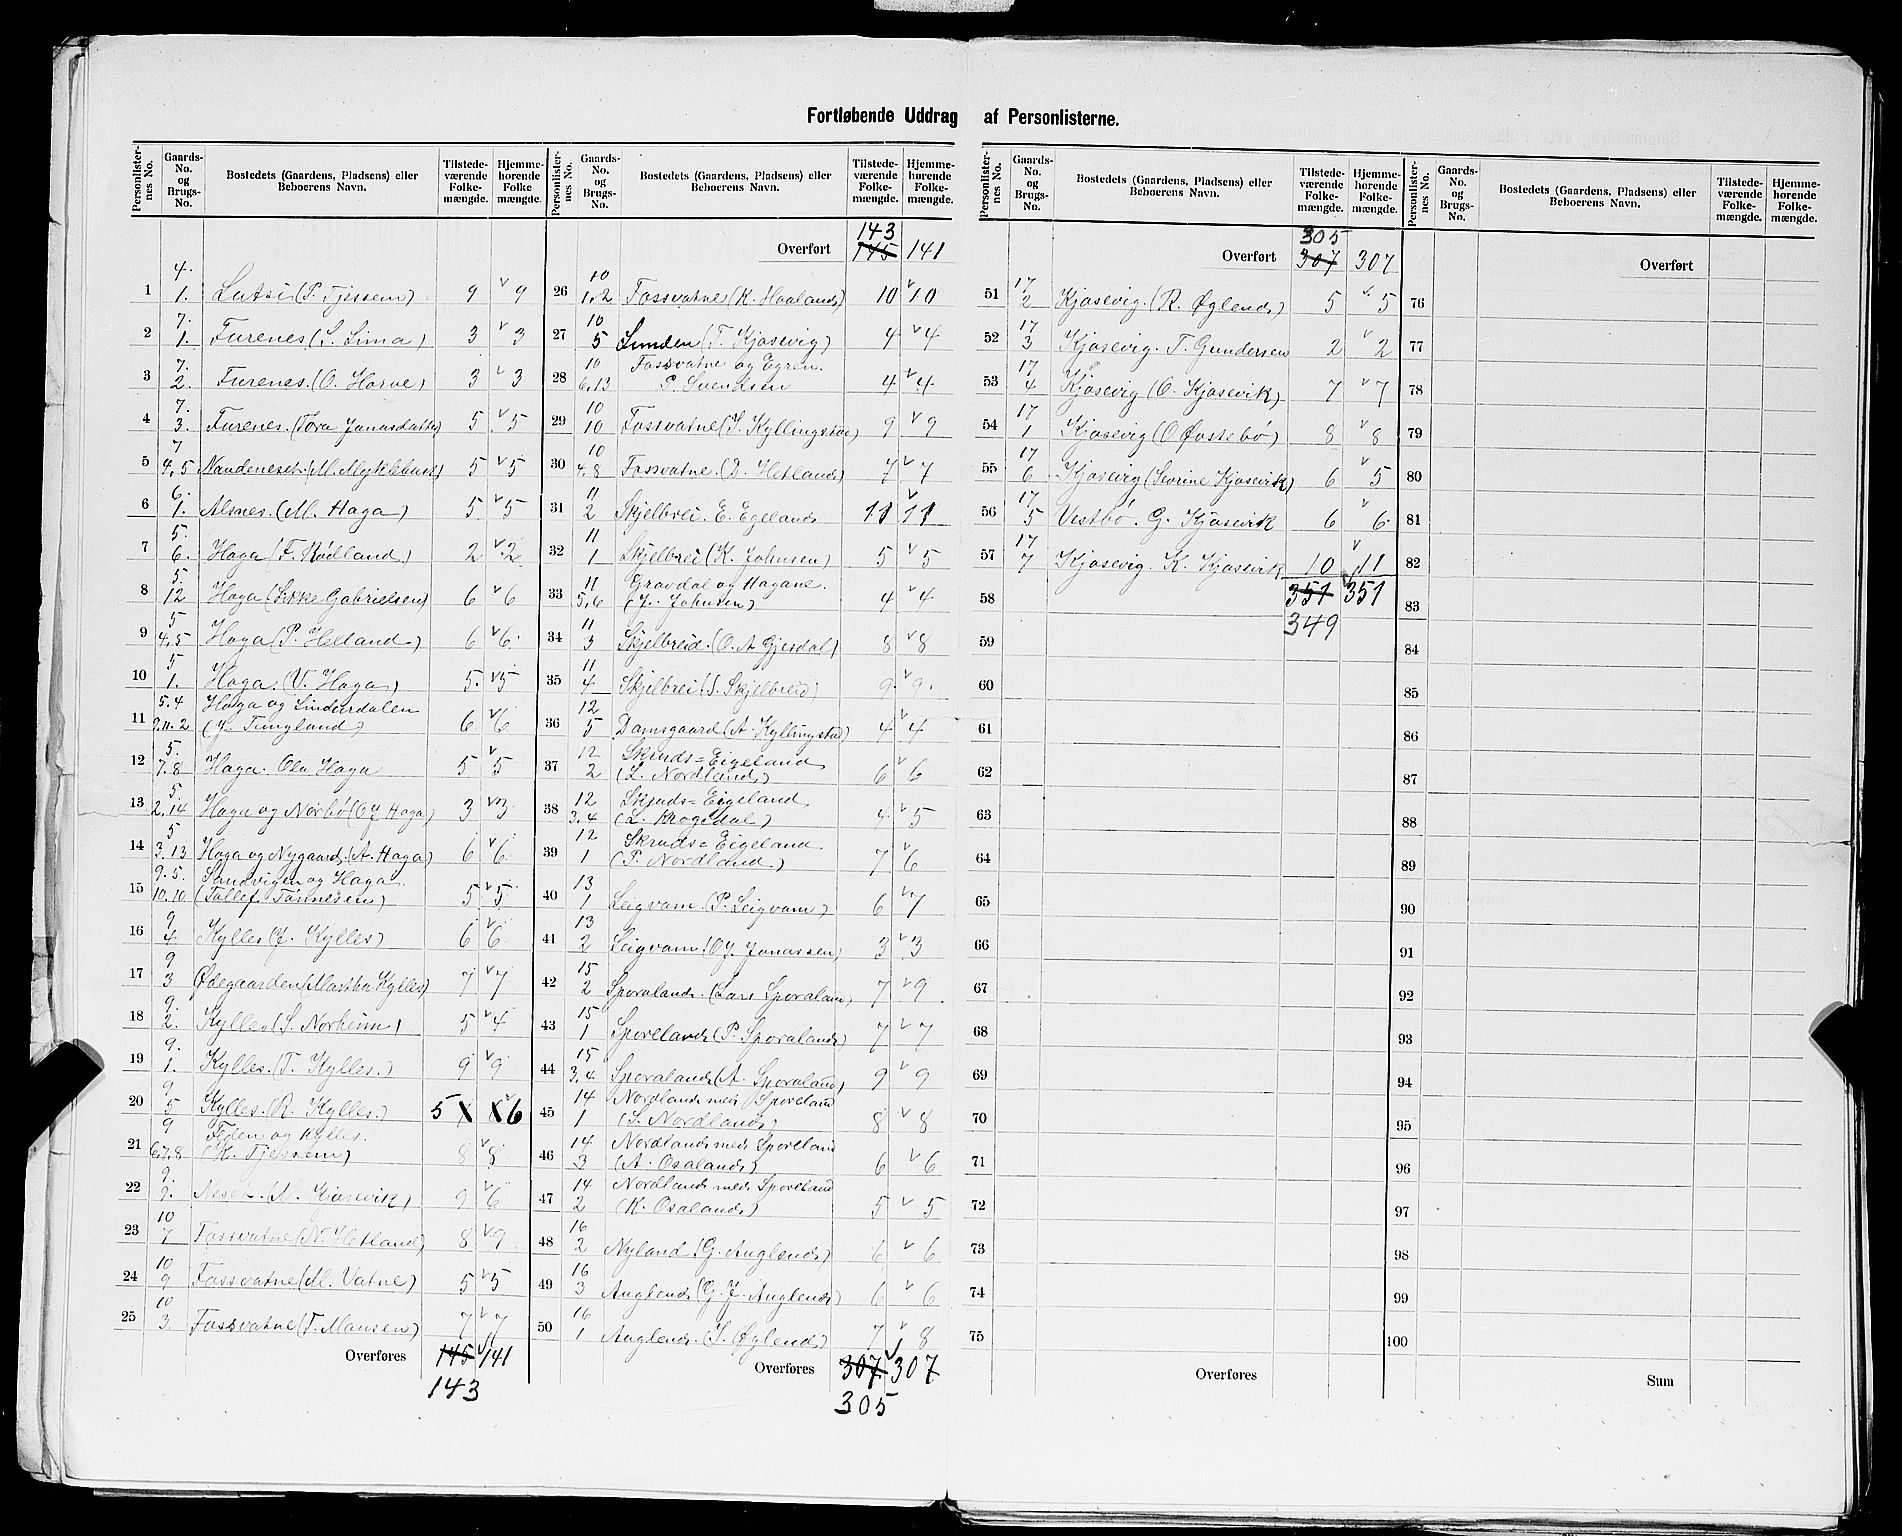 Fortløbende Uddrag af Personlisterne.
Personlister-nes No. Gaards-No. og Brugs-No. Bostedets (Gaardens, Pladsens) eller Beboerens Navn. Tilstede-værende Folke-mængde. Hjemme-hørende Folke-mængde.
1 4. 1. (P. Tjessem) 9 v 9
2 7. 1. Furenes (S. Lima) 3 v 3
3 7. 2. Furenes. (O. Horve) 3 v 3
4 7. 3. Furenes. (Tora Jonasdatter) 5 v 5
5 7 4,5 (M. Myklebust) 5 v 5
6 6. 1. Alsnes. (M. Haga) 5 v 5
7 5. 6. Haga (F. Rødland.) 2 v 2
8 5. 12 Haga (Sikke Gabrielsen) 6 v 6
9 5 4,5 Haga (P. Helland) 6 v 6
10 5 1. Haga. (V. Haga) 5 v 5
11 5.4 9.11.2 Haga og Linderdalen
(J. Tungland) 6 v 6
12 5. 7.8 Haga. Ola Haga 5 v 5
13 5. 2.14 Haga og Norbø (O J Haga) 3 v 3
14 5 3.13 Haga og Nygaard. (A. Haga) 6 v 6
15 9.5. 10.10 Sandvigen og Haga
(Tollef Tønnesen) 5 v 5
16 9 4 Kylles (J. Kylles) 6 v 6
17 9 3 Ødegaarden (Martha Kylles) 7 v 7
18 9. 2. Kylles (S. Norheim) 5 v 4
19 9. 1. Kylles. (T. Kylles.) 9 v 9
20 9 5 Kylles. (R. Kylles.) 5 X X 6
21 9 6,7,8 Fejen og Kylles.
(K. Tjessem) 8 v 8
22 9. 9. Neset. (M. Kjosevik) 9 v 6
23 10 7 Fossvatne (N. Hetland) 8 v 7
24 10 9 Fossvatne (M. Vatne) 5 v 5
25 10 3. Fossvatne (T. Mansen) 7 v 7
Overføres 145 141
143
Personlister-nes No. Gaards-No. og Brugs-No. Bostedets (Gaardens, Pladsens) eller Beboerens Navn. Tilstede-værende Folke-mængde. Hjemme-hørende Folke-mængde.
143
Overført 145 141
26 10 1.2 Fossvatne (K. Haaland) 10 v 10
27 10 5 Linden (T. Kjosevig) 4 v 4
28 10 6,13 Fossvatne og Egren.
P. Svendsen 4 v 4
29 10 10 Fossvatne (S. Kyllingstad) 9 v 9
30 10 4,8 Fossvatne. (D. Hetland) 7 v 7
31 11 2 Skjelbrei. E. Egeland 11 v 11
32 11 1 Skjelbrei (K. Johnsen) 5 v 5
33 11 5,6 Gravdal og Hagane.
(J. Johnsen) 4 v 4
34 11 3 Skjelbreid. (O. A Gjesdal) 8 v 8
35 11 4 Skjelbrei (S. Skjelbreid) 9 v 9.
36 12 5 Damsgaard (A. Kyllingstad) 4 v 4
37 12 2 Skruds=Eigeland
(L. Nordland) 6 v 6
38 12 3.4 Skjuds=Eigeland
(L. Krogedal) 4 v 5
39 12 1 Skruds=Eigeland
(P. Nordland) 7 v 6
40 13 1 Leigvam. (P. Leigvam) 6 v 7
41 13 2 Leigvam (O J. Jonassen) 3 v 3
42 15 2 Sporaland. (Lars Sporaland) 7 v 9
43 15 1 Sporeland (P. Sporaland) 7 v 7
44 15 3,4 Sporaland (A. Sporaland) 9 v 9
45 14 1 Nordland med Sporeland
(S. Nordland) 8 v 8
46 14 3 Nordland med Sporeland
(A. Osaland) 6 v 6
47 14 2 Nordland med Sporeland
(K. Osaland) 5 v 5
48 16 2 Nyland (G. Auglend) 6 v 6
49 16 3 Auglend (G. J. Auglend) 6 v 6
50 16 1 Auglend. (S. Øglend) 7 v 8
Overføres 307 307
305
Personlister-nes No. Gaards-No. og Brugs-No. Bostedets (Gaardens, Pladsens) eller Beboerens Navn. Tilstede-værende Folke-mængde. Hjemme-hørende Folke-mængde.
305
Overført 307 307
51 17 2 Kjosevig. (R. Øglend) 5 v 5
52 17 3 Kjosevig. T. Gundersen 2 v 2
53 17 4 Kjosevig (O. Kjosevik) 7 v 7
54 17 1 Kjosevig (O Øvstebø) 8 v 8
55 17 6 Kjosevig (Severine Kjosevik) 6 v 5
56 17 5 Vestbø. G. Kjosevik 6 v 6
57 17 7 Kjosevig. K. Kjosevik 10 v 11
58 351 351
349
59
60
61
62
63
64
65
66
67
68
69
70
71
72
73
74
75
Overføres
Personlister-nes No. Gaards-No. og Brugs-No. Bostedets (Gaardens, Pladsens) eller Beboerens Navn. Tilstede-værende Folke-mængde. Hjemme-hørende Folke-mængde.
Overført
76
77
78
79
80
81
82
83
84
85
86
87
88
89
90
91
92
93
94
95
96
97
98
99
100
Sum